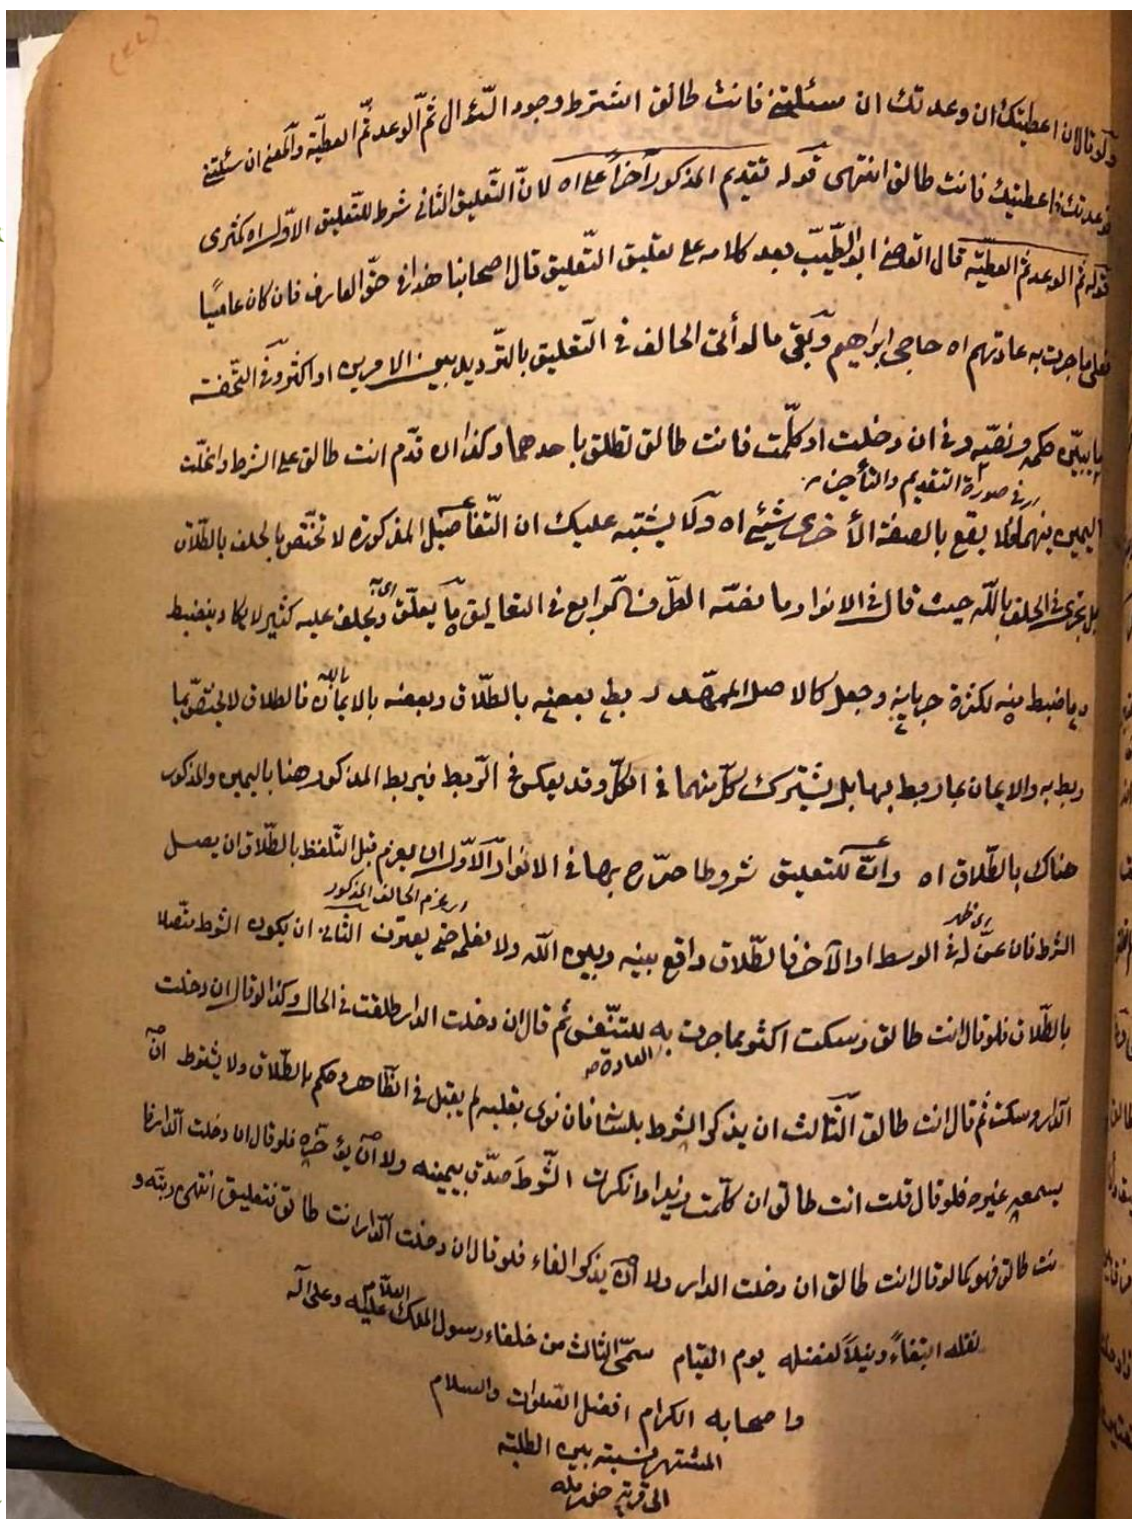 ولو قال ان اعطيتك ان وعدتك ان سئلتنى فانت طالق اشترط وجود السّؤال ثمّ الوعد ثمّ العطيّة والمعنى ان سئلتنى
فوعدتك فاعطيتك فانت طالق انتهى قوله تقديم المذكور آخراً على اه لانّ التّعليق الثانى شرط للتّعليق الاوّل اه كمثرى
قوله ثم الوعد ثم العطيّة قال القاضى ابو الطّيّب بعد كلامه على تعليق التّعليق قال اصحابنا هذا فى حقّ العارف فان كان عاميًا
فعلى ما جرت به عادتهم اه حاجى ابراهيم وبقى ما لو أتى الحالف فى التّعليق بالتّرديد بين الامرين او اكثر وفى التّحفة
ما يبيّن حكمه ونصّه وفى ان دخلت او كلّمت فانت طالق تطلق باحدهما وكذا ان قدّم انت طالق على الشرط وانحلّت
فى صورة التقديم والتأخير
اليمين بينهما فلا يقع بالصفة الأخرى شيئ اه ولا يشتبه عليك ان التّفاصيل المذكورة لا تختصّ بالحلف بالطّلاق
بل تجرى فى الحلف باللّه حيث قال فى الانوار ما نصّه الطّرف الرّابع فى التعاليق ما يعلّق ويحلف عليه كثير لا يكاد ينضبط
وما ضبط منه لكثرة جريانه وجعل كالاصل الممهّد ربط بعضه بالطّلاق وبعضه بالايمان بالله فالطلاق لا يختصّ بما
ربط به والايمان بما ربط بها بل يشترك كلّ منهما فى الكلّ وقد يعكس فى الرّبط فيربط المذكور هنا باليمين والمذكور
هناك بالطّلاق اه وانّ للتعليق شروطا صرّح بها فى الانوار الاوّل ان يعزم قبل التّلفظ بالطّلاق ان يصل
اى ظهر
اى عزم الحالف المذكور
الشرط فان عنّ له فى الوسط او الآخر فالطّلاق واقع بينه وبين اللّه ولا نعلمه حتى يعترف الثانى ان يكون الشرط متّصلا
بالطّلاق فلو قال انت طالق وسكت اكثر مما جرت به العادة للتّنفّس ثم قال ان دخلت الدار طلقت فى الحال وكذا لو قال ان دخلت
الدّار وسكت ثم قال انت طالق الثّالث ان يذكر الشرط بلسانه فان نوى بقلبه لم يقبل فى الظّاهر وحكم بالطّلاق ولا يشترط ان
يسمعه غيره فلو قال قلت انت طالق ان كلّمت زيدا وانكرت الشّرط صدّق بيمينه ولا ان يؤخّره فلو قال ان دخلت الدّار فا
نت طالق فهو كما لو قال انت طالق ان دخلت الدار ولا ان يذكر الفاء فلو قال ان دخلت الدّار انت طالق فتعليق انتهى
نقله ابتغاءً ونيلاً لفضله يوم القيام سمىّ الثالث من خلفاء رسول الملك السلام عليه وعلى آله
واصحابه الكرام افضل الصّلوات والسلام
المشتهر نسبته بين الطلبة
الى قرية